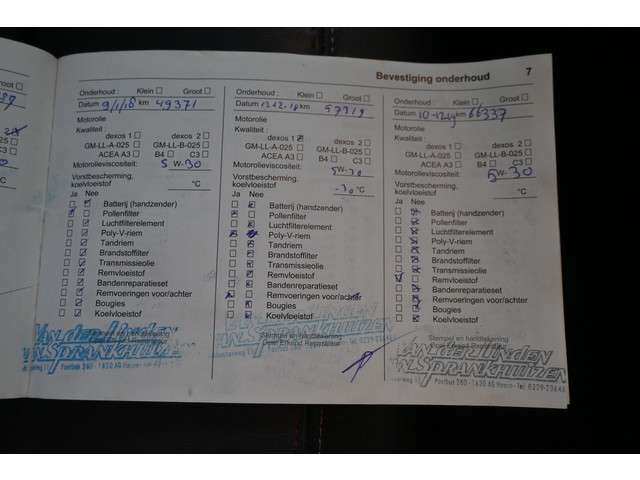 Bevestiging onderhoud 7
Onderhoud : Klein Groot
Datum 9/1/18 km 49371
Motorolie
Kwaliteit
dexos 1 dexos 2
GM-LL-A-025 GM-LL-B-025
ACEA A3 B4 C3
Motorolieviscositeit: 5 W-30
Vorstbescherming,
koelvloeistof °C
Ja Nee
Batterij (handzender)
Pollenfilter
Luchtfilterelement
Poly-V-riem
Tandriem
Brandstoffilter
Transmissieolie
Remvloeistof
Bandenreparatieset
Remvoeringen voor/achter
Bougies
Koelvloeistof
VAN DER LINDEN
VAN SPRANKHUIZEN
Postbus 260 - 1620 AG Hoorn
Onderhoud : Klein Groot
Datum km
Motorolie
Kwaliteit :
dexos 1 dexos 2
GM-LL-A-025 GM-LL-B-025
ACEA A3 B4 C3
Motorolieviscositeit: 5W-30
Vorstbescherming,
koelvloeistof -30 °C
Ja Nee
Batterij (handzender)
Pollenfilter
Luchtfilterelement
Poly-V-riem
Tandriem
Brandstoffilter
Transmissieolie
Remvloeistof
Bandenreparatieset
Remvoeringen voor/achter
Bougies
Koelvloeistof
Stempel en handtekening
Opel Erkend Reparateur
Onderhoud : Klein Groot
Datum km 66337
Motorolie
Kwaliteit :
dexos 1 dexos 2
GM-LL-A-025 GM-LL-B-025
ACEA A3 B4 C3
Motorolieviscositeit: 5W-30
Vorstbescherming,
koelvloeistof °C
Ja Nee
Batterij (handzender)
Pollenfilter
Luchtfilterelement
Poly-V-riem
Tandriem
Brandstoffilter
Transmissieolie
Remvloeistof
Bandenreparatieset
Remvoeringen voor/achter
Bougies
Koelvloeistof
Stempel en handtekening
Opel Erkend Reparateur
VAN DER LINDEN
VAN SPRANKHUIZEN
Postbus 260 - 1620 AG Hoorn - Tel.